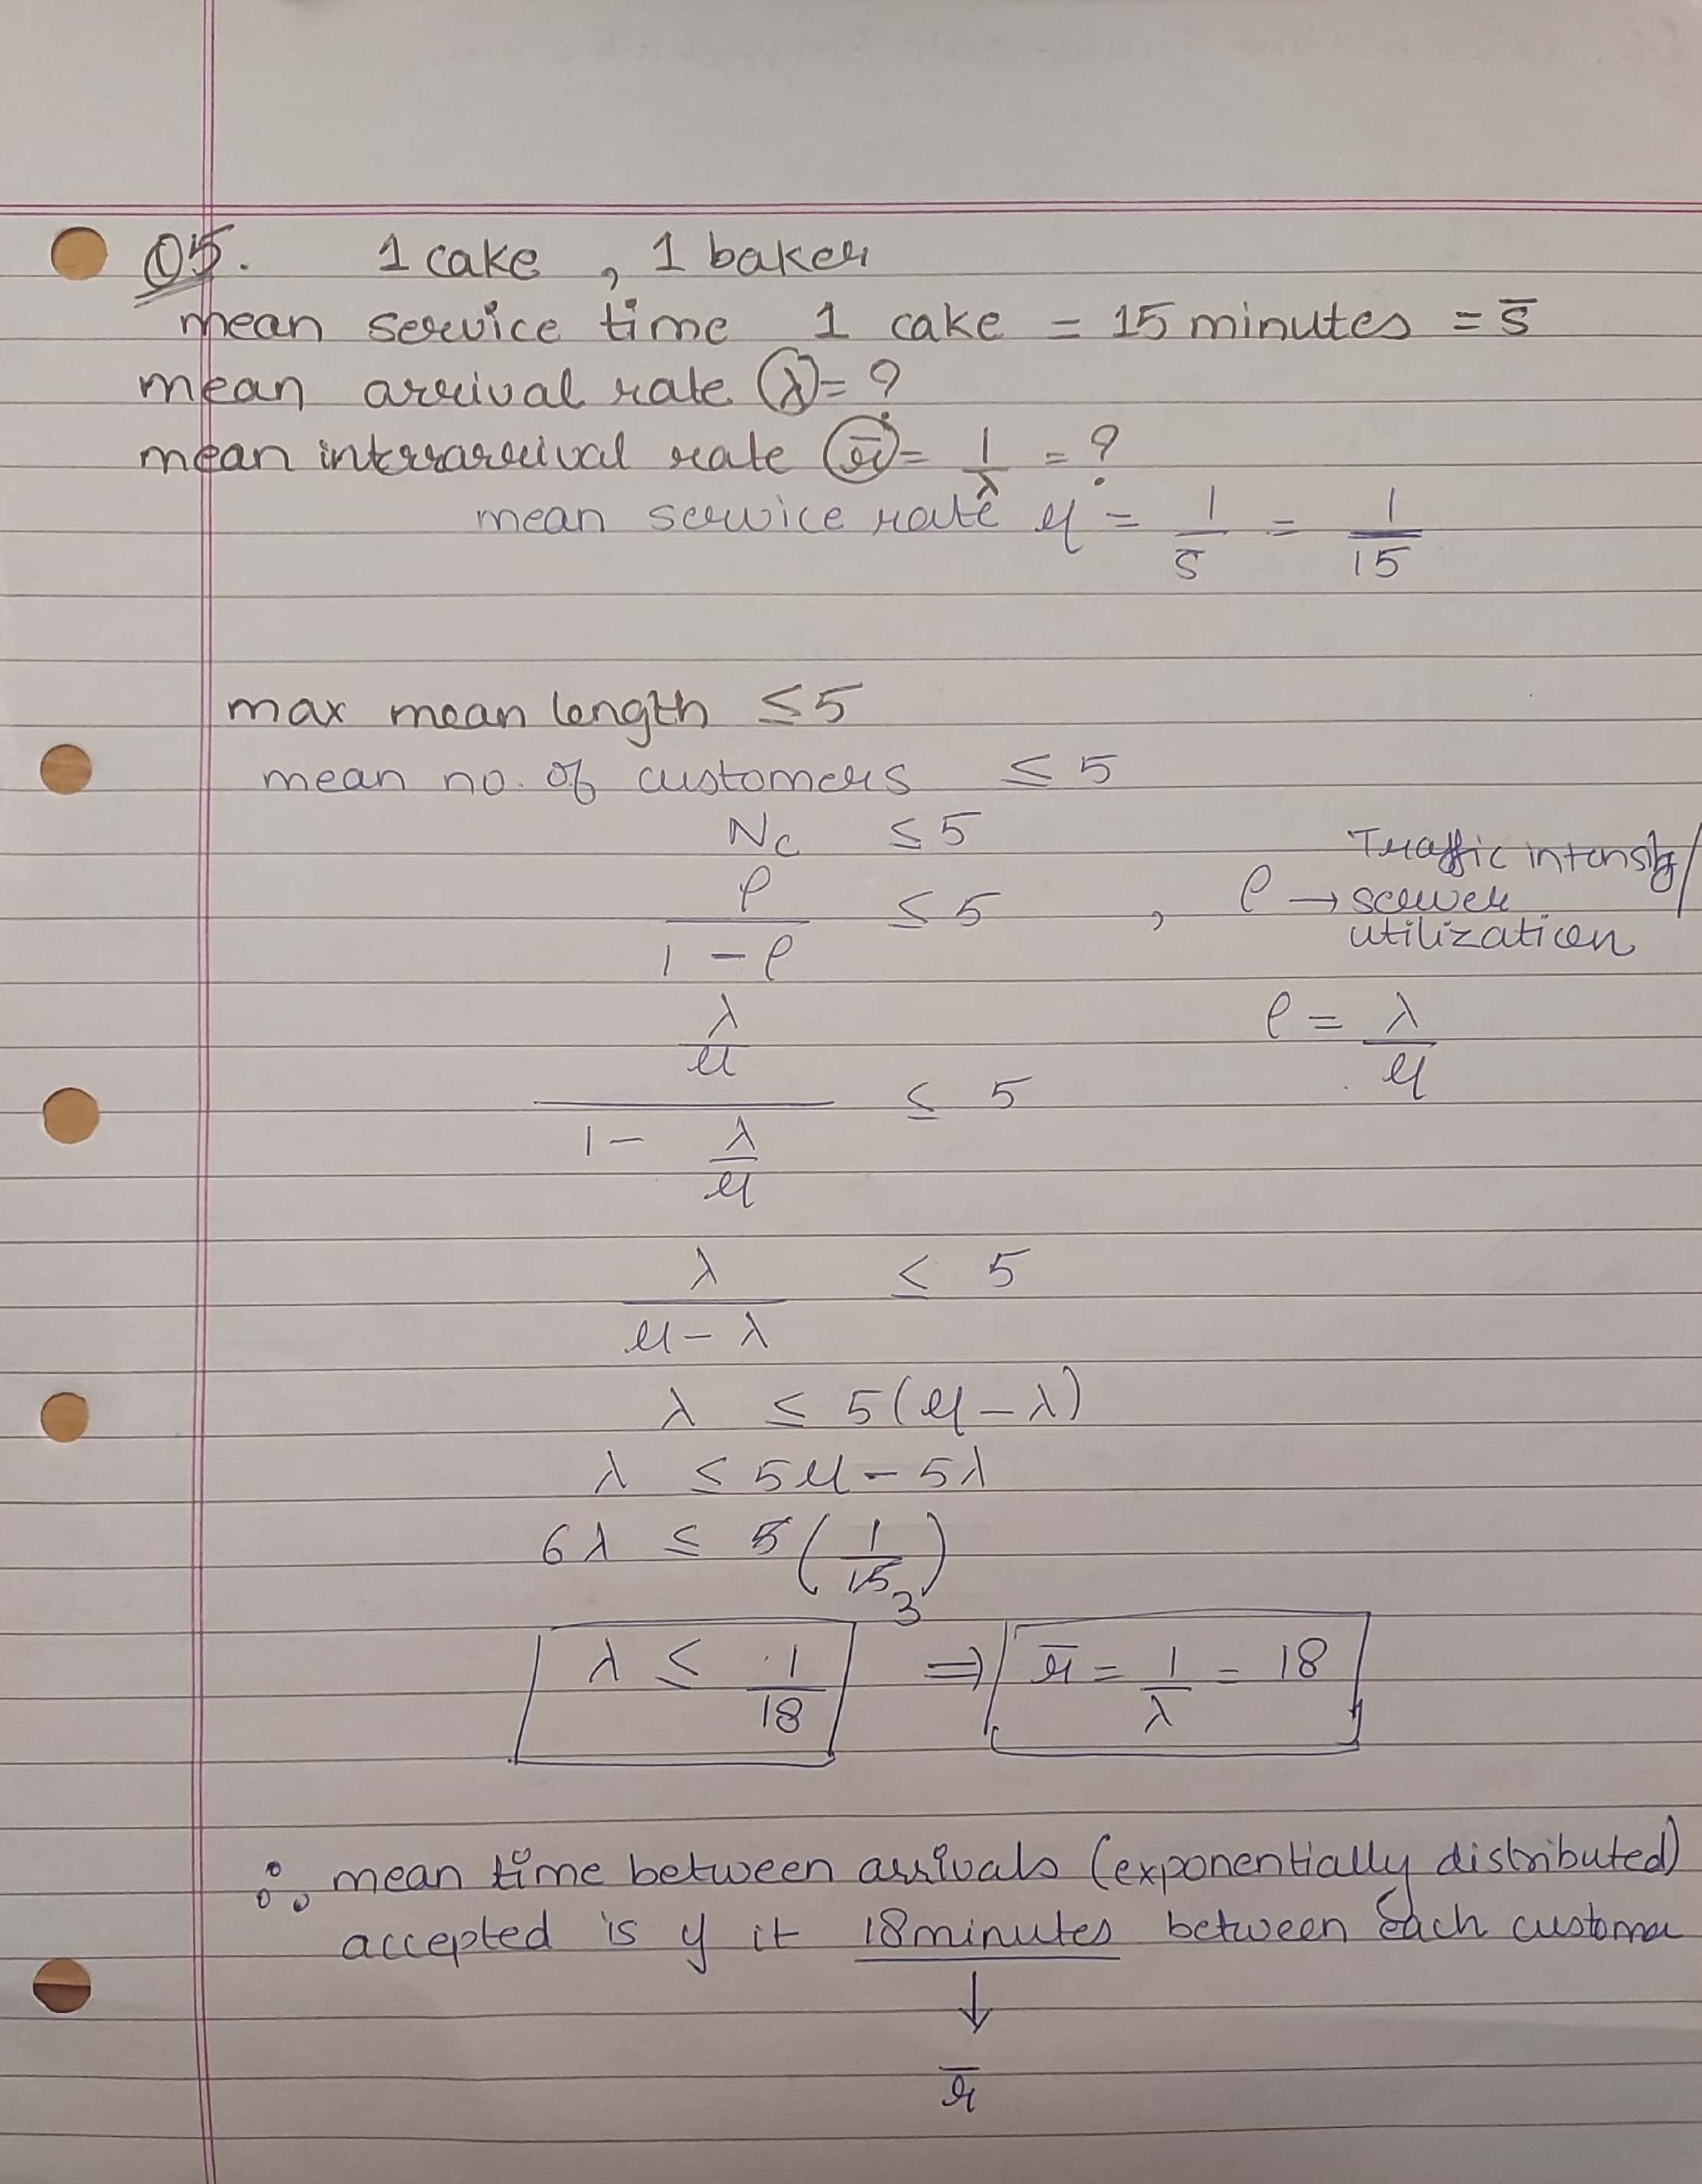 Q5. 1 cake, 1 baker
mean service time 1 cake = 15 minutes = s̄
mean arrival rate (λ) = ?
mean interrarrival rate (r̄) = 1/λ = ?
mean service rate μ = 1/s̄ = 1/15
max mean length ≤ 5
mean no. of customers ≤ 5
Nc ≤ 5
ρ/(1 - ρ) ≤ 5 , ρ → Traffic intensity/
server
utilization
(λ/μ)/(1 - λ/μ) ≤ 5
ρ = λ/μ
λ/(μ - λ) ≤ 5
λ ≤ 5(μ - λ)
λ ≤ 5μ - 5λ
6λ ≤ 5(1/15) 3
λ ≤ 1/18 ⇒ r̄ = 1/λ = 18
∴ mean time between arrivals (exponentially distributed)
accepted is if it 18 minutes between each customer
↓
r̄